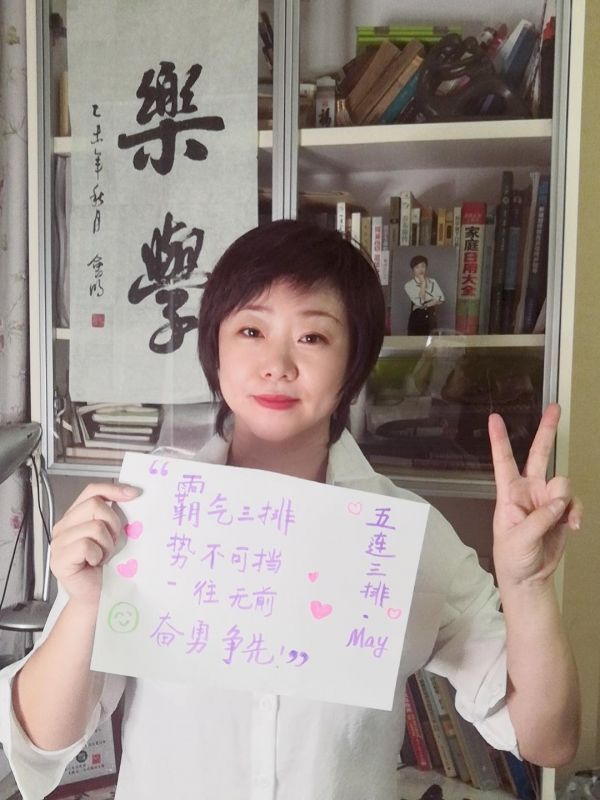 樂學
乙未年秋月
福
家庭日用大全
“霸气三排
势不可挡
一往无前
奋勇争先!”
五连三排·
May